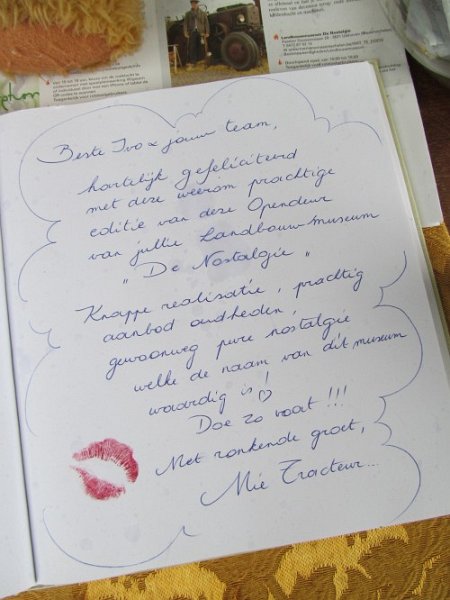 Beste Ivo & jouw team,
hartelijk gefeliciteerd
met deze weerom prachtige
editie van deze Opendeur
van jullie Landbouw-museum
" De Nostalgie "
Knappe realisatie, prachtig
aanbod oudheden,
gewoonweg pure nostalgie
welke de naam van dit museum
waardig is! ♡
Doe zo voort !!!
Met ronkende groet,
Mie Tracteur...
Landbouwmuseum De Nostalgie